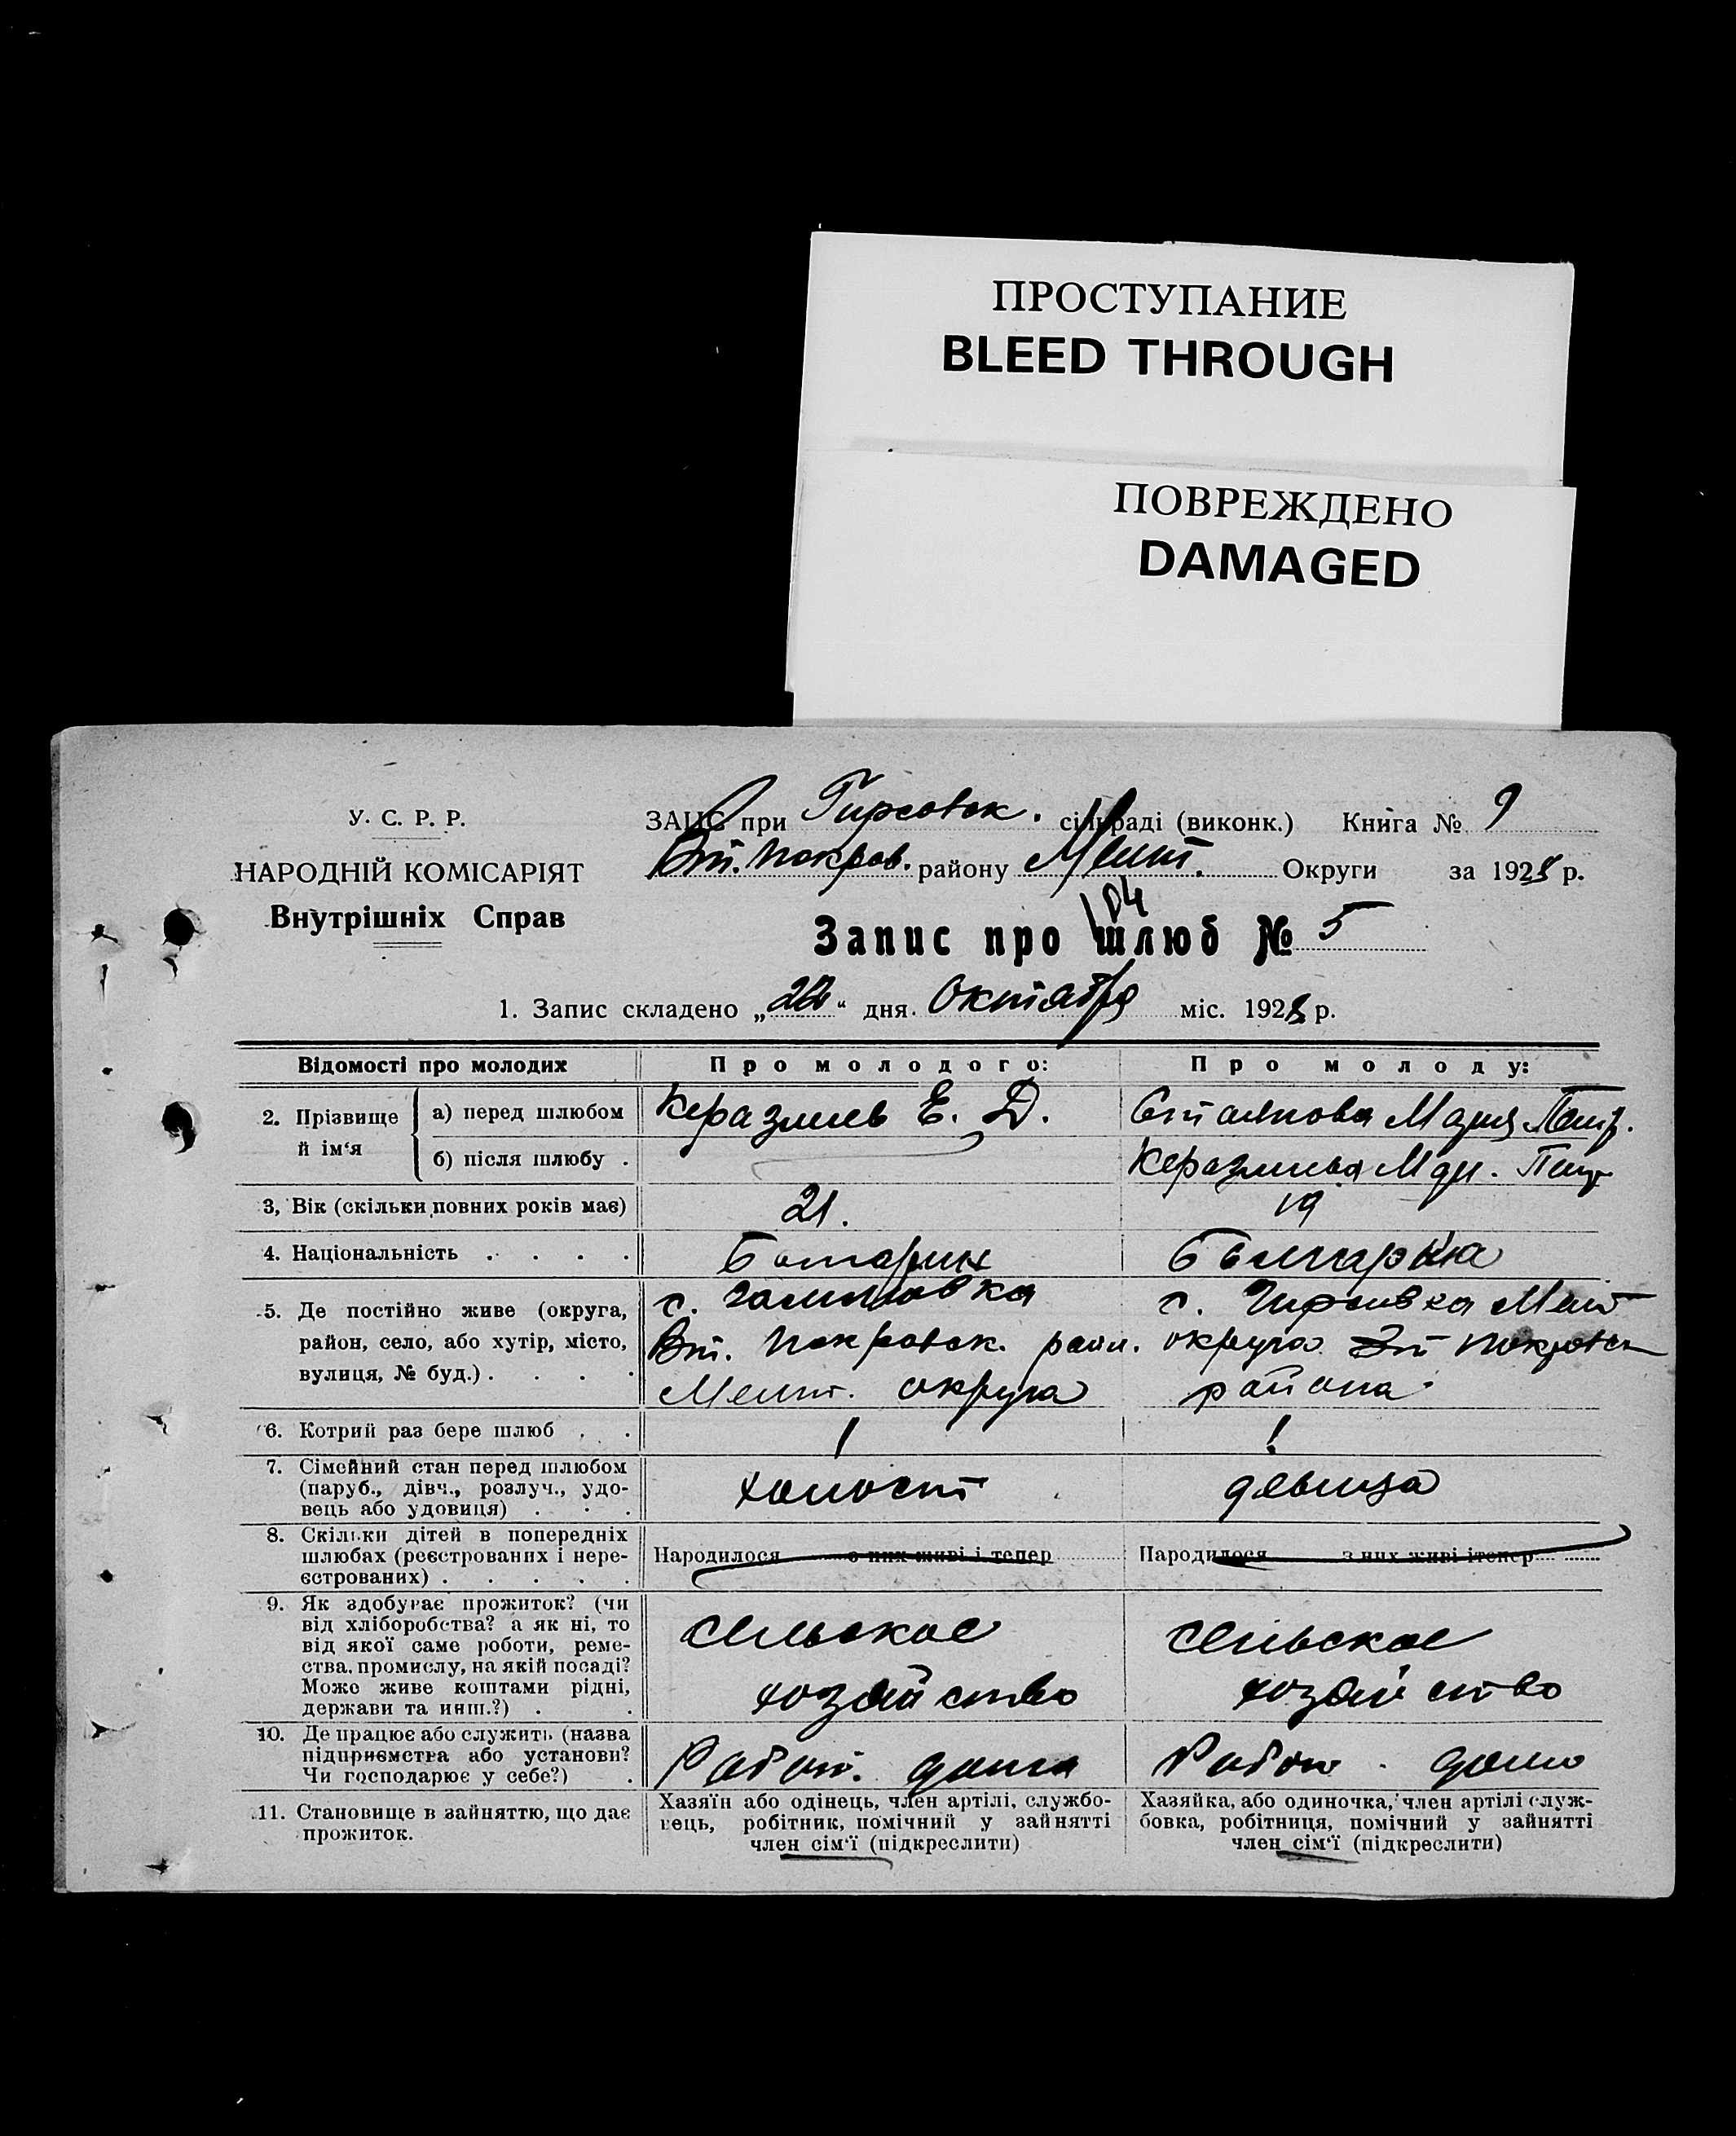 ПРОСТУПАНИЕ
BLEED THROUGH
ПОВРЕЖДЕНО
DAMAGED
У. С. Р. Р.
НАРОДНІЙ КОМІСАРІЯТ
Внутрішніх Справ
ЗАЦС при Гирсовск. сільраді (виконк.) Книга № 9
Вт. Покров. району Мелит. Округи за 1928 р.
104
Запис про шлюб № 5
1. Запис складено „22“ дня Октября міс. 1928 р.
Відомості про молодих
Про молодого:
Про молоду:
2. Прізвище й ім‘я
а) перед шлюбом
Е. Д.
Стаянова Мария Петр.
б) після шлюбу .
3, Вік (скільки повних років має)
21.
19
4. Національність . . . .
Болгарин
Болгарка
5. Де постійно живе (округа, район, село, або хутір, місто, вулиця, № буд.) . . . .
с.
Вт. Покровск. район.
Мелит. округа
с. Гирсивка Мелит
округа Вт Покровск
района
6. Котрий раз бере шлюб . . .
1
1
7. Сімейний стан перед шлюбом
(паруб., дівч., розлуч., удо-
вець або удовиця) . . .
холост
девица
8. Скільки дітей в попередніх
шлюбах (реєстрованих і нере-
єстрованих) . . . . .
Народилося з них живі і тепер
Народилося з них живі ітепер
9. Як здобуває прожиток? (чи
від хліборобства? а як ні, то
від якої саме роботи, реме-
ства, промислу, на якій посаді?
Може живе коштами рідні,
держави та инш.?) . .
сельское
хозяйство
сельское
хозяйство
10. Де працює або служить (назва
підприємства або установи?
Чи господарює у себе?) .
Работ. дома
Работ. дома
11. Становище в зайняттю, що дає
прожиток.
Хазяїн або одінець, член артілі, службо-
вець, робітник, помічний у зайнятті
член сім‘ї (підкреслити)
Хазяйка, або одиночка, член артілі служ-
бовка, робітниця, помічний у зайнятті
член сім‘ї (підкреслити)